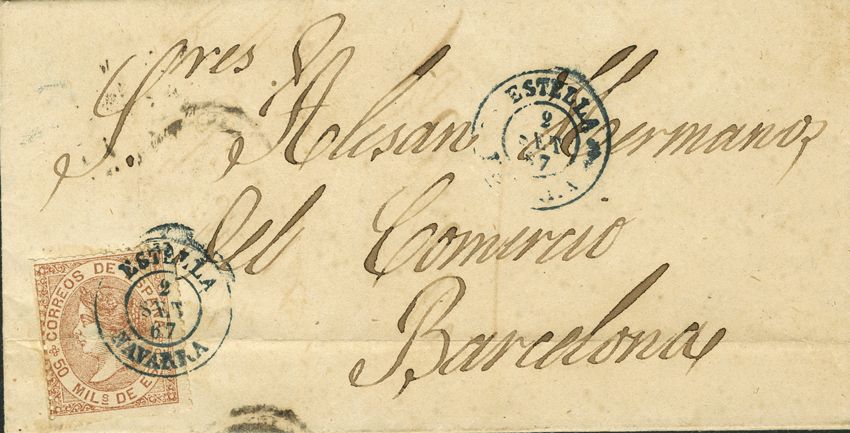 Sres Alisan Hermanos
del Comercio
Barcelona
ESTELLA
2
SET
67
ESTELLA
2
SET
67
NAVARRA
CORREOS DE
50 MILs DE E